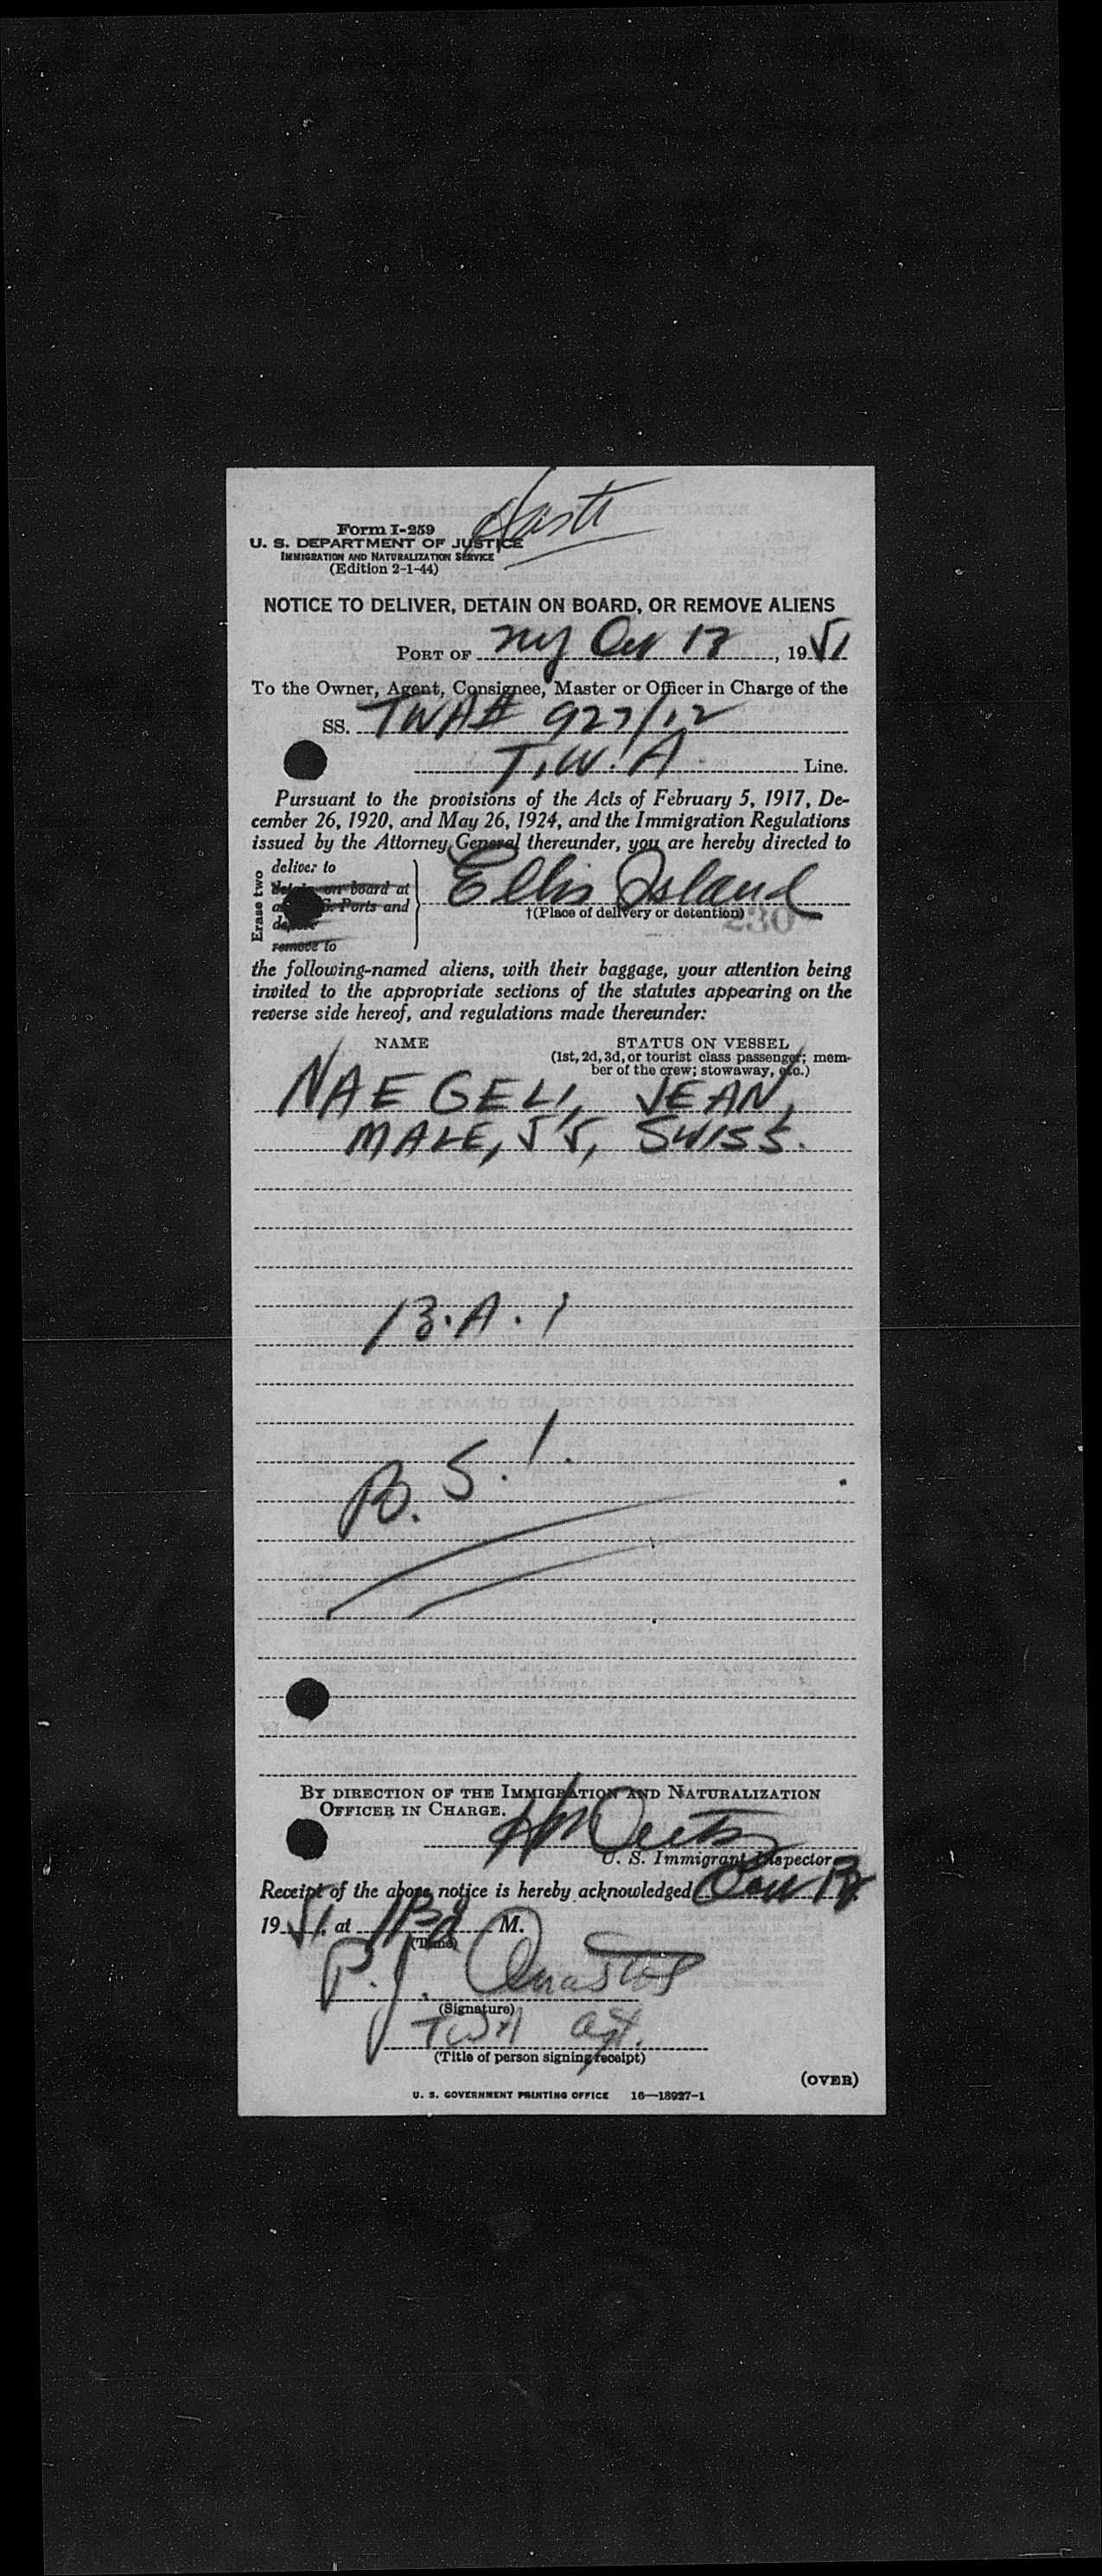 Form I-259
U. S. DEPARTMENT OF JUSTICE
IMMIGRATION AND NATURALIZATION SERVICE
(Edition 2-1-44)
NOTICE TO DELIVER, DETAIN ON BOARD, OR REMOVE ALIENS
PORT OF NY 19 51
To the Owner, Agent, Consignee, Master or Officer in Charge of the
SS. TWA# 927/12
T.W.A. Line.
Pursuant to the provisions of the Acts of February 5, 1917, De-
cember 26, 1920, and May 26, 1924, and the Immigration Regulations
issued by the Attorney General thereunder, you are hereby directed to
Erase two
deliver to
detain on board at
Ports and
remove to
Ellis Island
†(Place of delivery or detention)
230
the following-named aliens, with their baggage, your attention being
invited to the appropriate sections of the statutes appearing on the
reverse side hereof, and regulations made thereunder:
NAME STATUS ON VESSEL
(1st, 2d, 3d, or tourist class passenger; mem-
ber of the crew; stowaway, etc.)
NAEGELI, JEAN,
MALE, 55, SWISS.
B.S.I.
BY DIRECTION OF THE IMMIGRATION AND NATURALIZATION
OFFICER IN CHARGE.
U. S. Immigrant Inspector
Receipt of the above notice is hereby acknowledged
19 51, at M.
(Time)
P.J. Anastos
(Signature)
TWA agt.
(Title of person signing receipt)
(OVER)
U. S. GOVERNMENT PRINTING OFFICE 16—18927-1